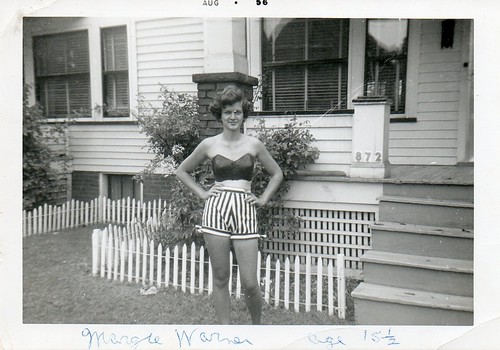 AUG • 56
872
Margie Warner age 15½